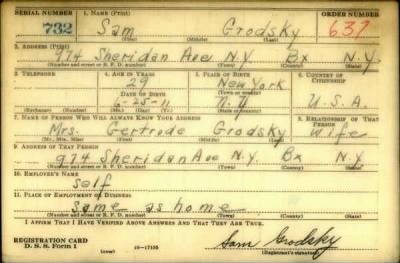 SERIAL NUMBER 1. NAME (Print) ORDER NUMBER
732 Sam Grodsky 637
(First) (Middle) (Last)
2. ADDRESS (Print)
974 Sheridan Ave N.Y. Bx N.Y.
(Number and street or R. F. D. number) (Town) (County) (State)
3. TELEPHONE 4. AGE IN YEARS 5. PLACE OF BIRTH 6. COUNTRY OF CITIZENSHIP
29 New York
DATE OF BIRTH (Town or county)
6-25-11 N.Y. U.S.A.
(Exchange) (Number) (Mo.) (Day) (Yr.) (State or country)
7. NAME OF PERSON WHO WILL ALWAYS KNOW YOUR ADDRESS 8. RELATIONSHIP OF THAT PERSON
Mrs. Gertrude Grodsky Wife
(Mr., Mrs., Miss) (First) (Middle) (Last)
9. ADDRESS OF THAT PERSON
974 Sheridan Ave N.Y. Bx N.Y
(Number and street or R. F. D. number) (Town) (County) (State)
10. EMPLOYER'S NAME
self
11. PLACE OF EMPLOYMENT OR BUSINESS
same as home
(Number and street or R. F. D. number) (Town) (County) (State)
I AFFIRM THAT I HAVE VERIFIED ABOVE ANSWERS AND THAT THEY ARE TRUE.
REGISTRATION CARD
D. S. S. Form 1 16-17105 Sam Grodsky
(Registrant's signature)